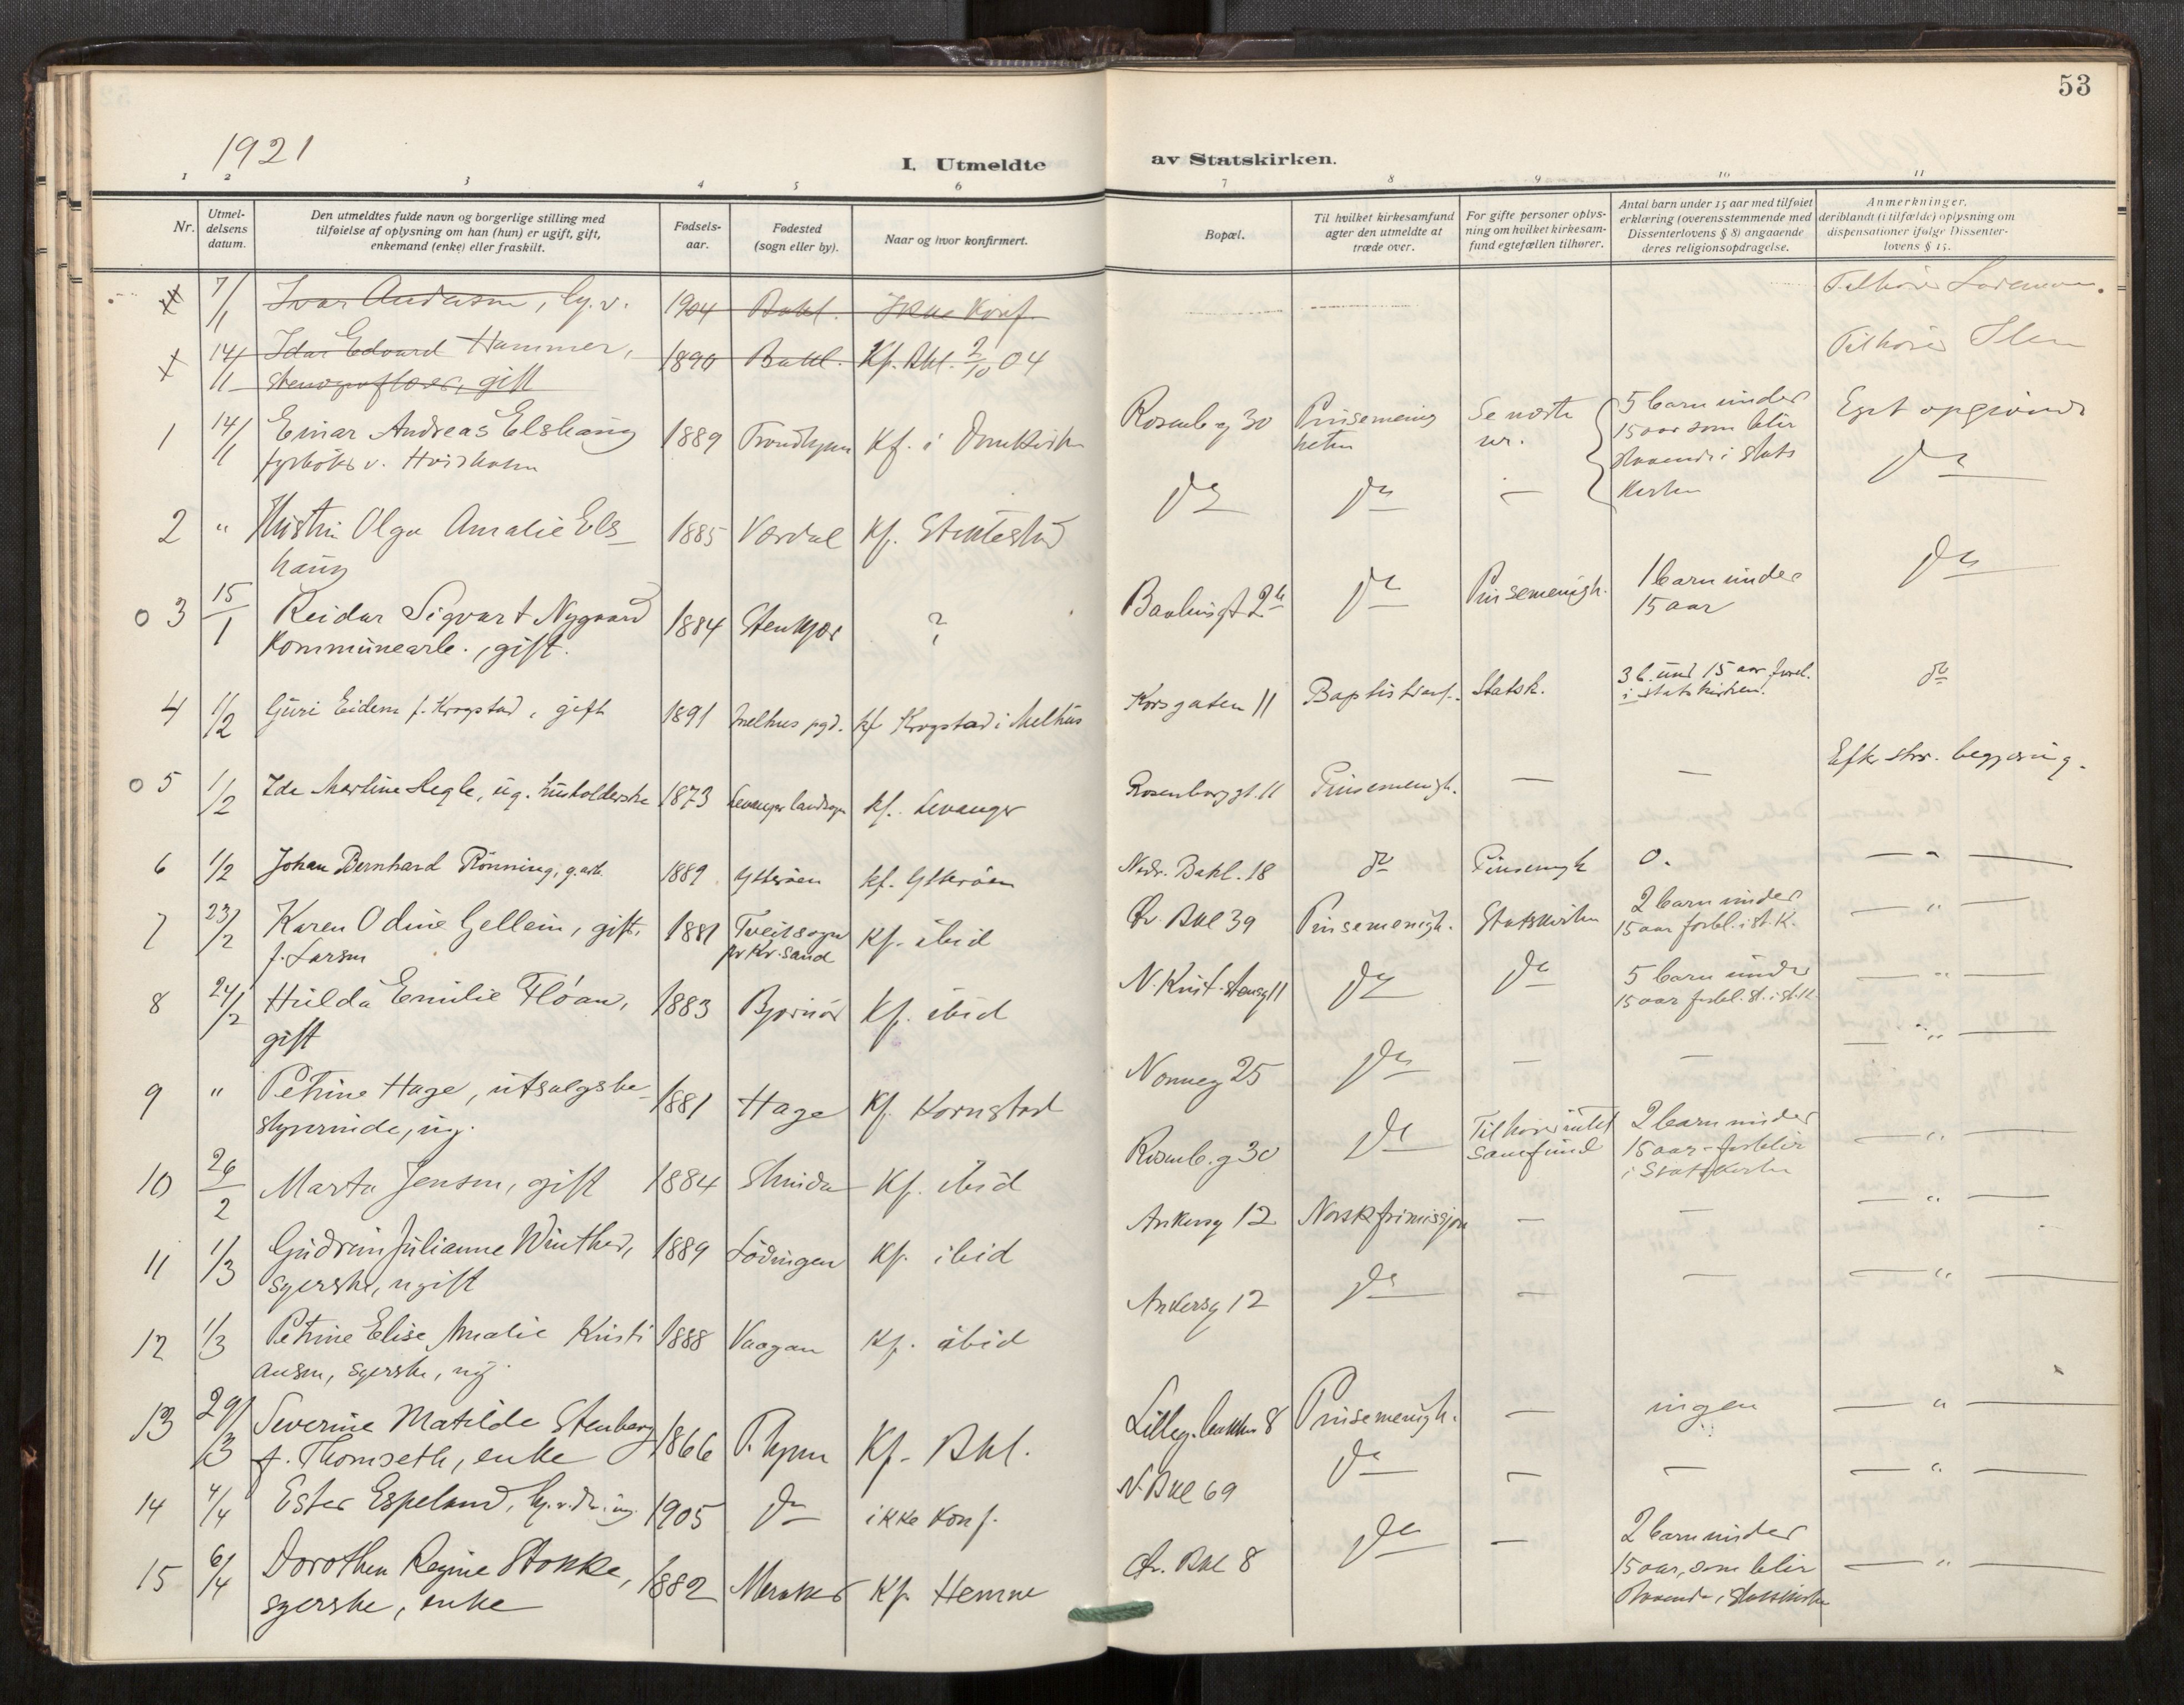 53
1921
I. Utmeldte av Statskirken.
1 2 3 4 5 6 7 8 9 10 11
Nr.
Utmel-
delsens
datum.
Den utmeldtes fulde navn og borgerlige stilling med
tilføielse af oplysning om han (hun) er ugift, gift,
enkemand (enke) eller fraskilt.
Fødsels-
aar.
Fødested
(sogn eller by).
Naar og hvor konfirmert.
Bopæl.
Til hvilket kirkesamfund
agter den utmeldte at
træde over.
For gifte personer oplys-
ning om hvilket kirkesam-
fund egtefællen tilhører.
Antal barn under 15 aar med tilføiet
erklæring (overensstemmende med
Dissenterlovens § 8) angaaende
deres religionsopdragelse.
Anmerkninger,
deriblandt (i tilfælde) oplysning om
dispensationer ifølge Dissenter-
lovens § 15.
7/1 Ivar Andersen, 1904 Bakl. Ikke Konf. Tilhører
14/1 Idar Edvard Hammer, 1890 Bakl. Kf. Bkl. 2/10 04 Tilhører Ilen
gift
1 14/1 Einar Andreas Elshaug 1889 Trondhjem Kf. i Domkirken Rosenb g 30 Pinsemenig Se næste 5 barn under Eget
fyrbøter v. heten nr. 15 aar som blir
staaende i Stats
kirken
2 " Hustru Olga Amalie Els- 1885 Værdal Kf. Stiklestad do do — do
haug
3 15/1 Reidar Sigvart Nygaard 1884 Stenkjær ? do Pinsemenigh. 1 barn under do
Kommunearb., gift. 15 aar
4 1/2 Guri Eidem f. Krogstad, gift 1891 Melhus pgd. kf Krogstad i Melhus Korsgaten 11 Baptistsamf. Statsk. 3 b. und 15 aar forbl. do
i statskirken.
5 1/2 Ida Martine Hegle, ug. husholderske 1873 Levanger landsogn kf. Levanger Rosenborg gt. 11 Pinsemenigh. — — Efter skr. begjæring.
6 1/2 Johan Bernhard Rønning, g. arb. 1889 Ytterøen kf. Ytterøen Nedr. Bakl. 18 do Pinsemgh 0. — " —
7 23/2 Karen Odine Gellein, gift, 1881 Tveit sogn Kf. ibid Øv Bkl 39 Pinsemenigh. Statskirken 2 barn under — " —
f. Larsen pr Kr. sand 15 aar forbl. i st. K.
8 24/2 Hulda Emilie Floan, 1883 Bjørnør Kf. ibid do do 5 barn under — " —
gift 15 aar forbl. st. i st. K.
9 " Petrine Hage, utsalgsbe- 1881 Hage Kf. Kornstad Nonneg 25 do — — — " —
styrerinde, ug.
10 26/2 Marta Jensen, gift 1884 Kf. ibid Rosenb. g 30 do Tilhører intet 2 barn under — " —
samfund 15 aar - forblir
i Statskirken
11 1/3 Gudrun Julianne Winther, 1889 Lødingen Kf. ibid Ankersg 12 Norsk frimisjon — — — " —
syerske, ugift
12 1/3 Petrine Elise Amalie Kristi 1888 Vaagan Kf. ibid Ankersg 12 do — — — " —
ansen, syerske, ug.
13 29/3 Severine Matilde Stenberg 1866 T. hjem Kf. Bkl. 8 Pinsemenigh. — ingen — " —
f. Thomseth, enke
14 4/4 Ester Espeland, 1905 do ikke Konf. N. Bkl 69 do — — — " —
15 6/4 Dorothea Regine Stokke, 1882 Meraker Kf. Hemne Øv. Bkl 8 do — 2 barn under — " —
syerske, enke 15 aar, som blir
staaende i Statskirken